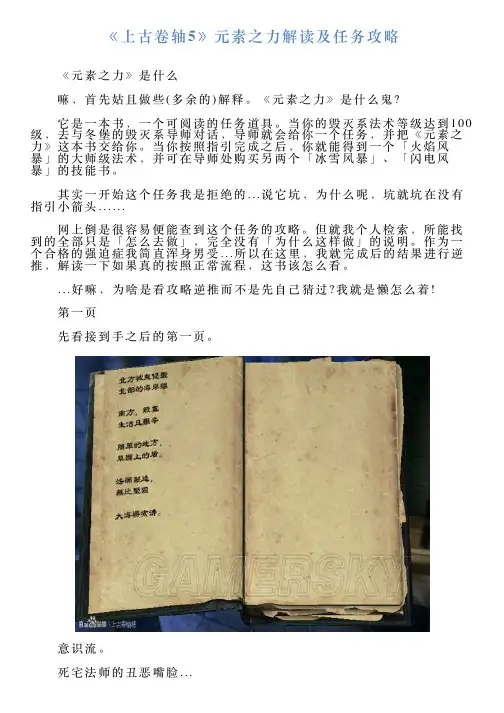 《上古卷轴5》元素之力解读及任务攻略
《元素之力》是什么
嘛，首先姑且做些(多余的)解释。《元素之力》是什么鬼?
它是一本书，一个可阅读的任务道具。当你的毁灭系法术等级达到100
级，去与冬堡的毁灭系导师对话，导师就会给你一个任务，并把《元素之
力》这本书交给你。当你按照指引完成之后，你就能得到一个「火焰风
暴」的大师级法术，并可在导师处购买另两个「冰雪风暴」、「闪电风
暴」的技能书。
其实一开始这个任务我是拒绝的...说它坑，为什么呢，坑就坑在没有
指引小箭头......
网上倒是很容易便能查到这个任务的攻略。但就我个人检索，所能找
到的全部只是「怎么去做」，完全没有「为什么这样做」的说明。作为一
个合格的强迫症我简直浑身男受...所以在这里，我就完成后的结果进行逆
推，解读一下如果真的按照正常流程，这书该怎么看。
...好嘛，为啥是看攻略逆推而不是先自己猜过?我就是懒怎么着!
第一页
先看接到手之后的第一页。
北部的海岸線
南方，
生活且艱辛
的地方，
上的盾。
法師製造，
無比堅固
大海
GAMERSKY
上古卷轴吧
意识流。
死宅法师的丑恶嘴脸...